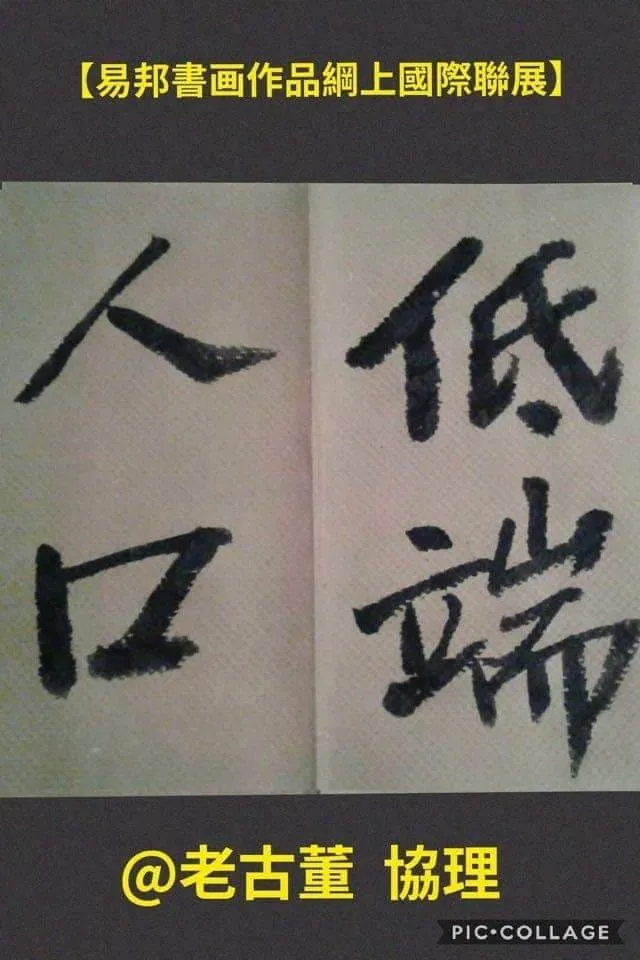 【易邦書画作品綱上國際聯展】
低端
人口
@老古董 協理
PIC•COLLAGE